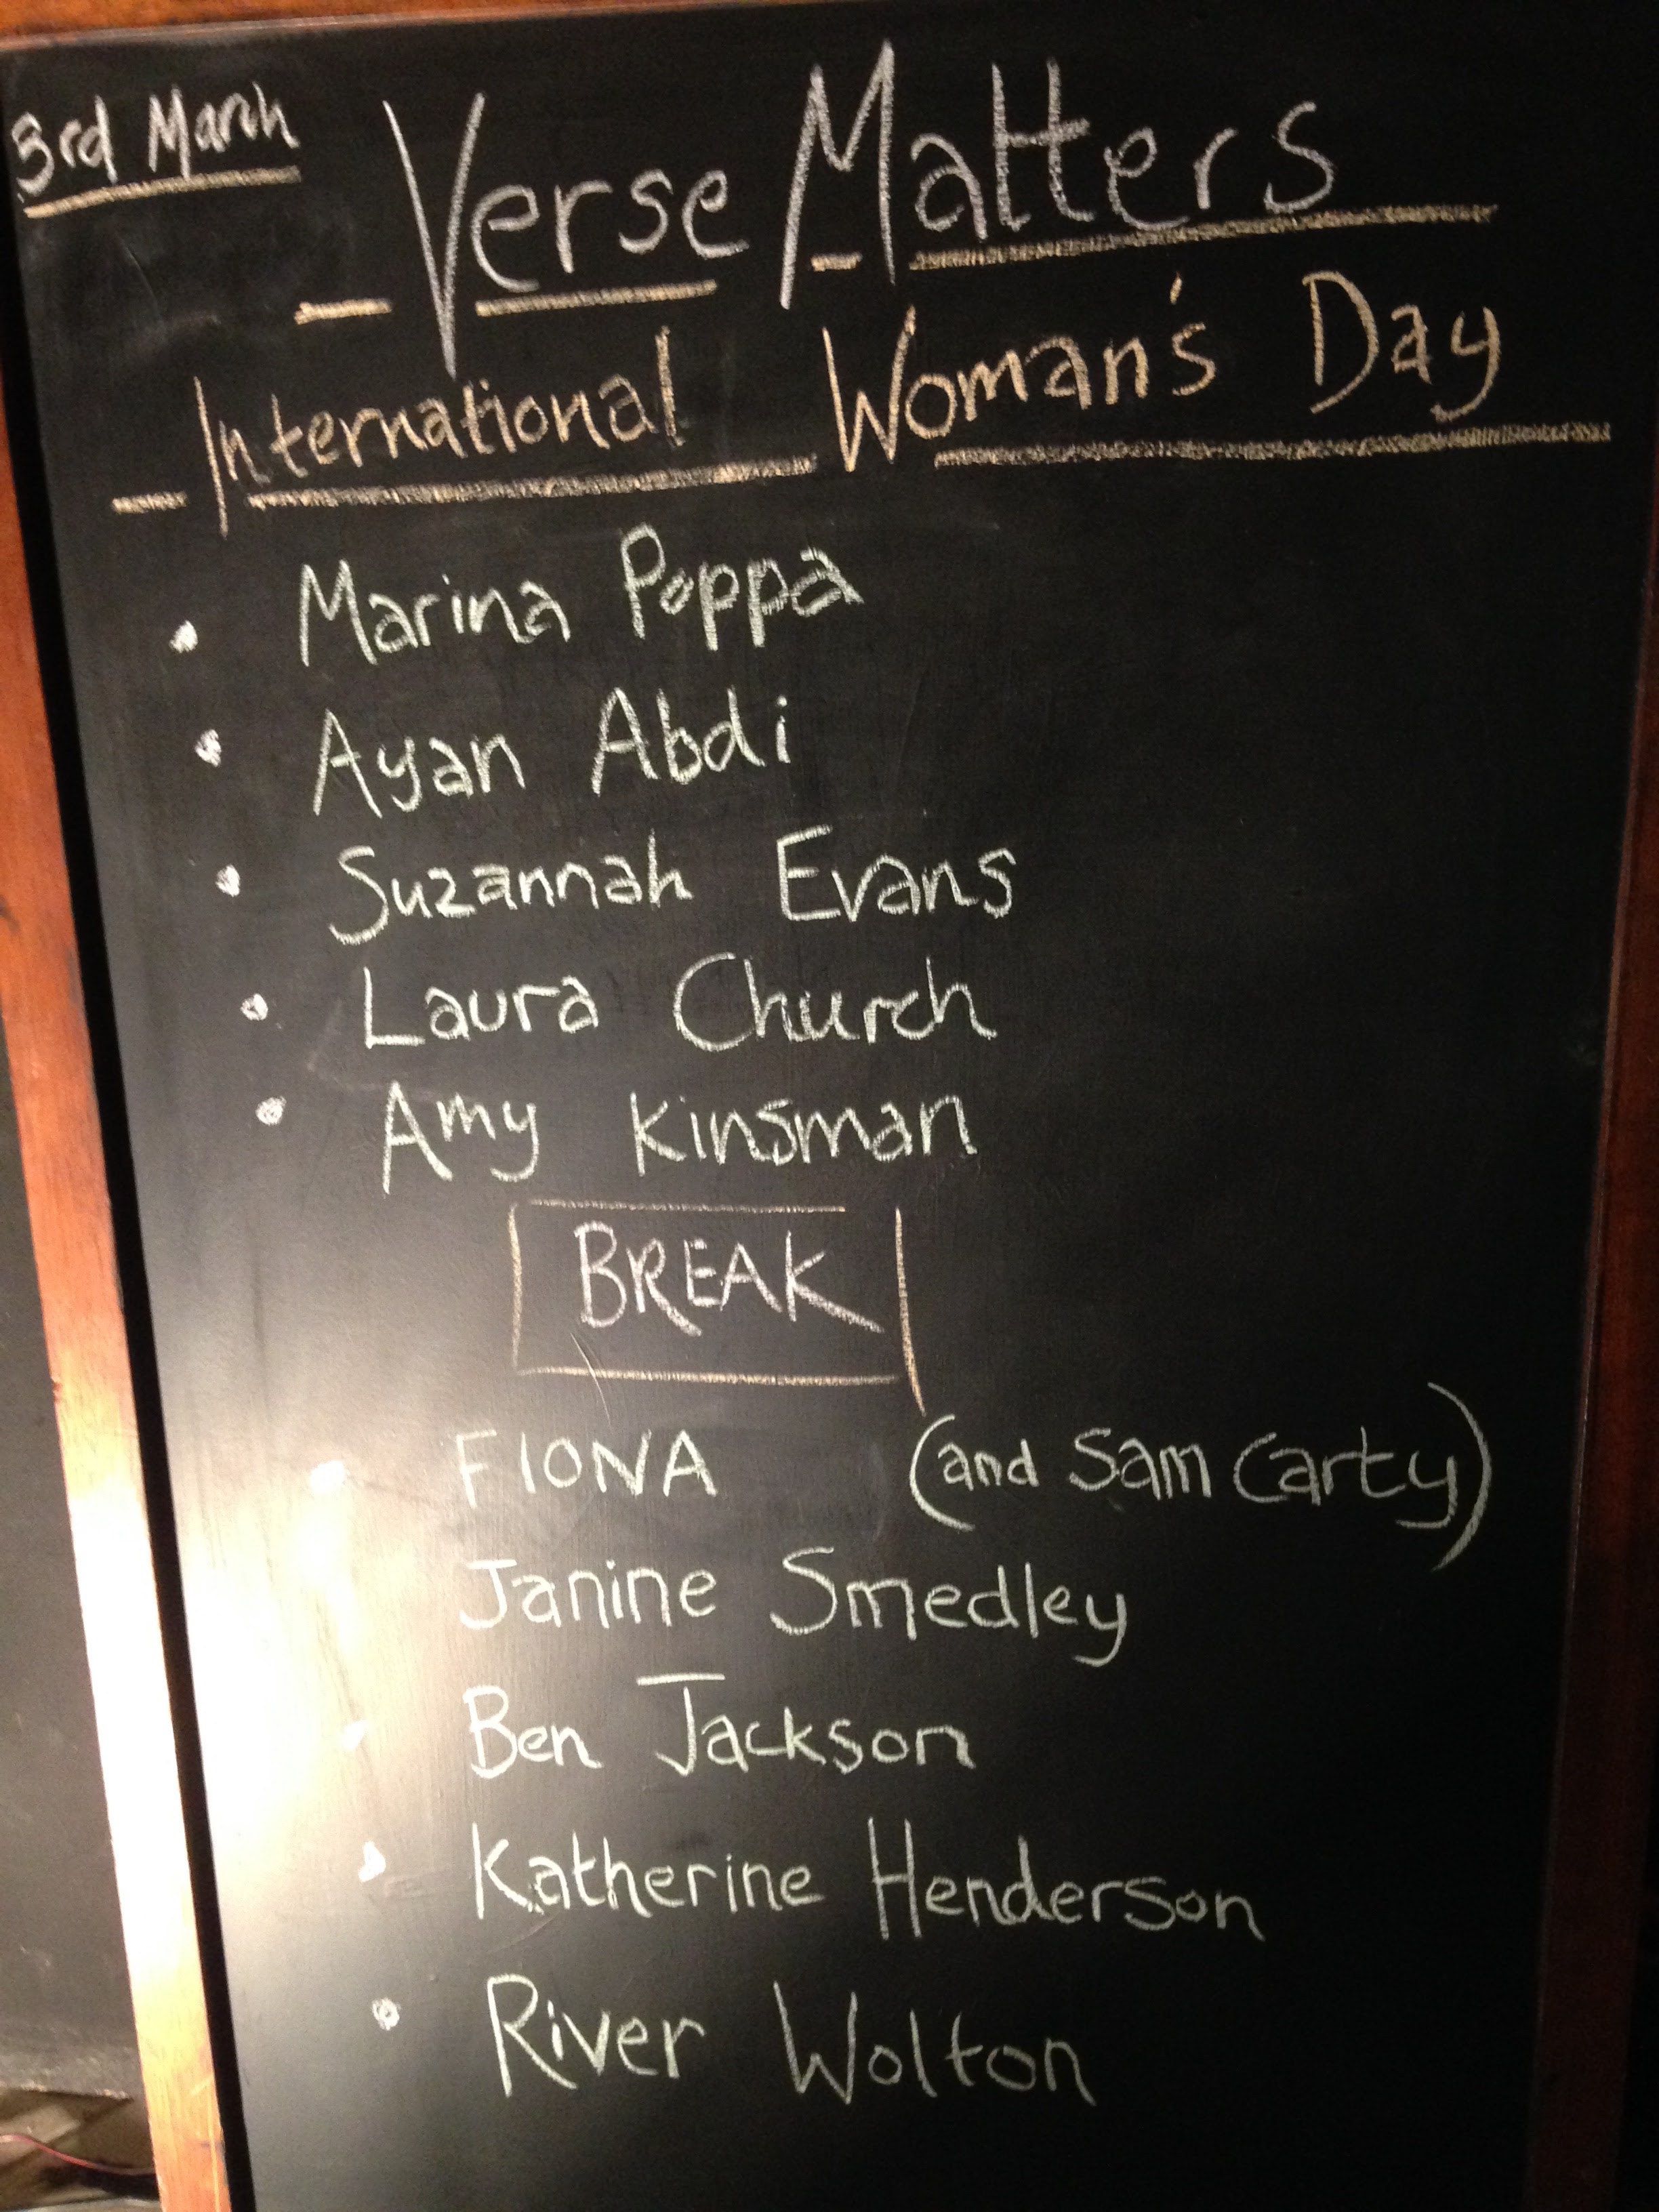 3rd March
Verse Matters
International Woman's Day
• Marina Poppa
• Ayan Abdi
• Suzannah Evans
• Laura Church
• Amy Kinsman
BREAK
• FIONA (and Sam Carty)
Janine Smedley
• Ben Jackson
• Katherine Henderson
• River Wolton